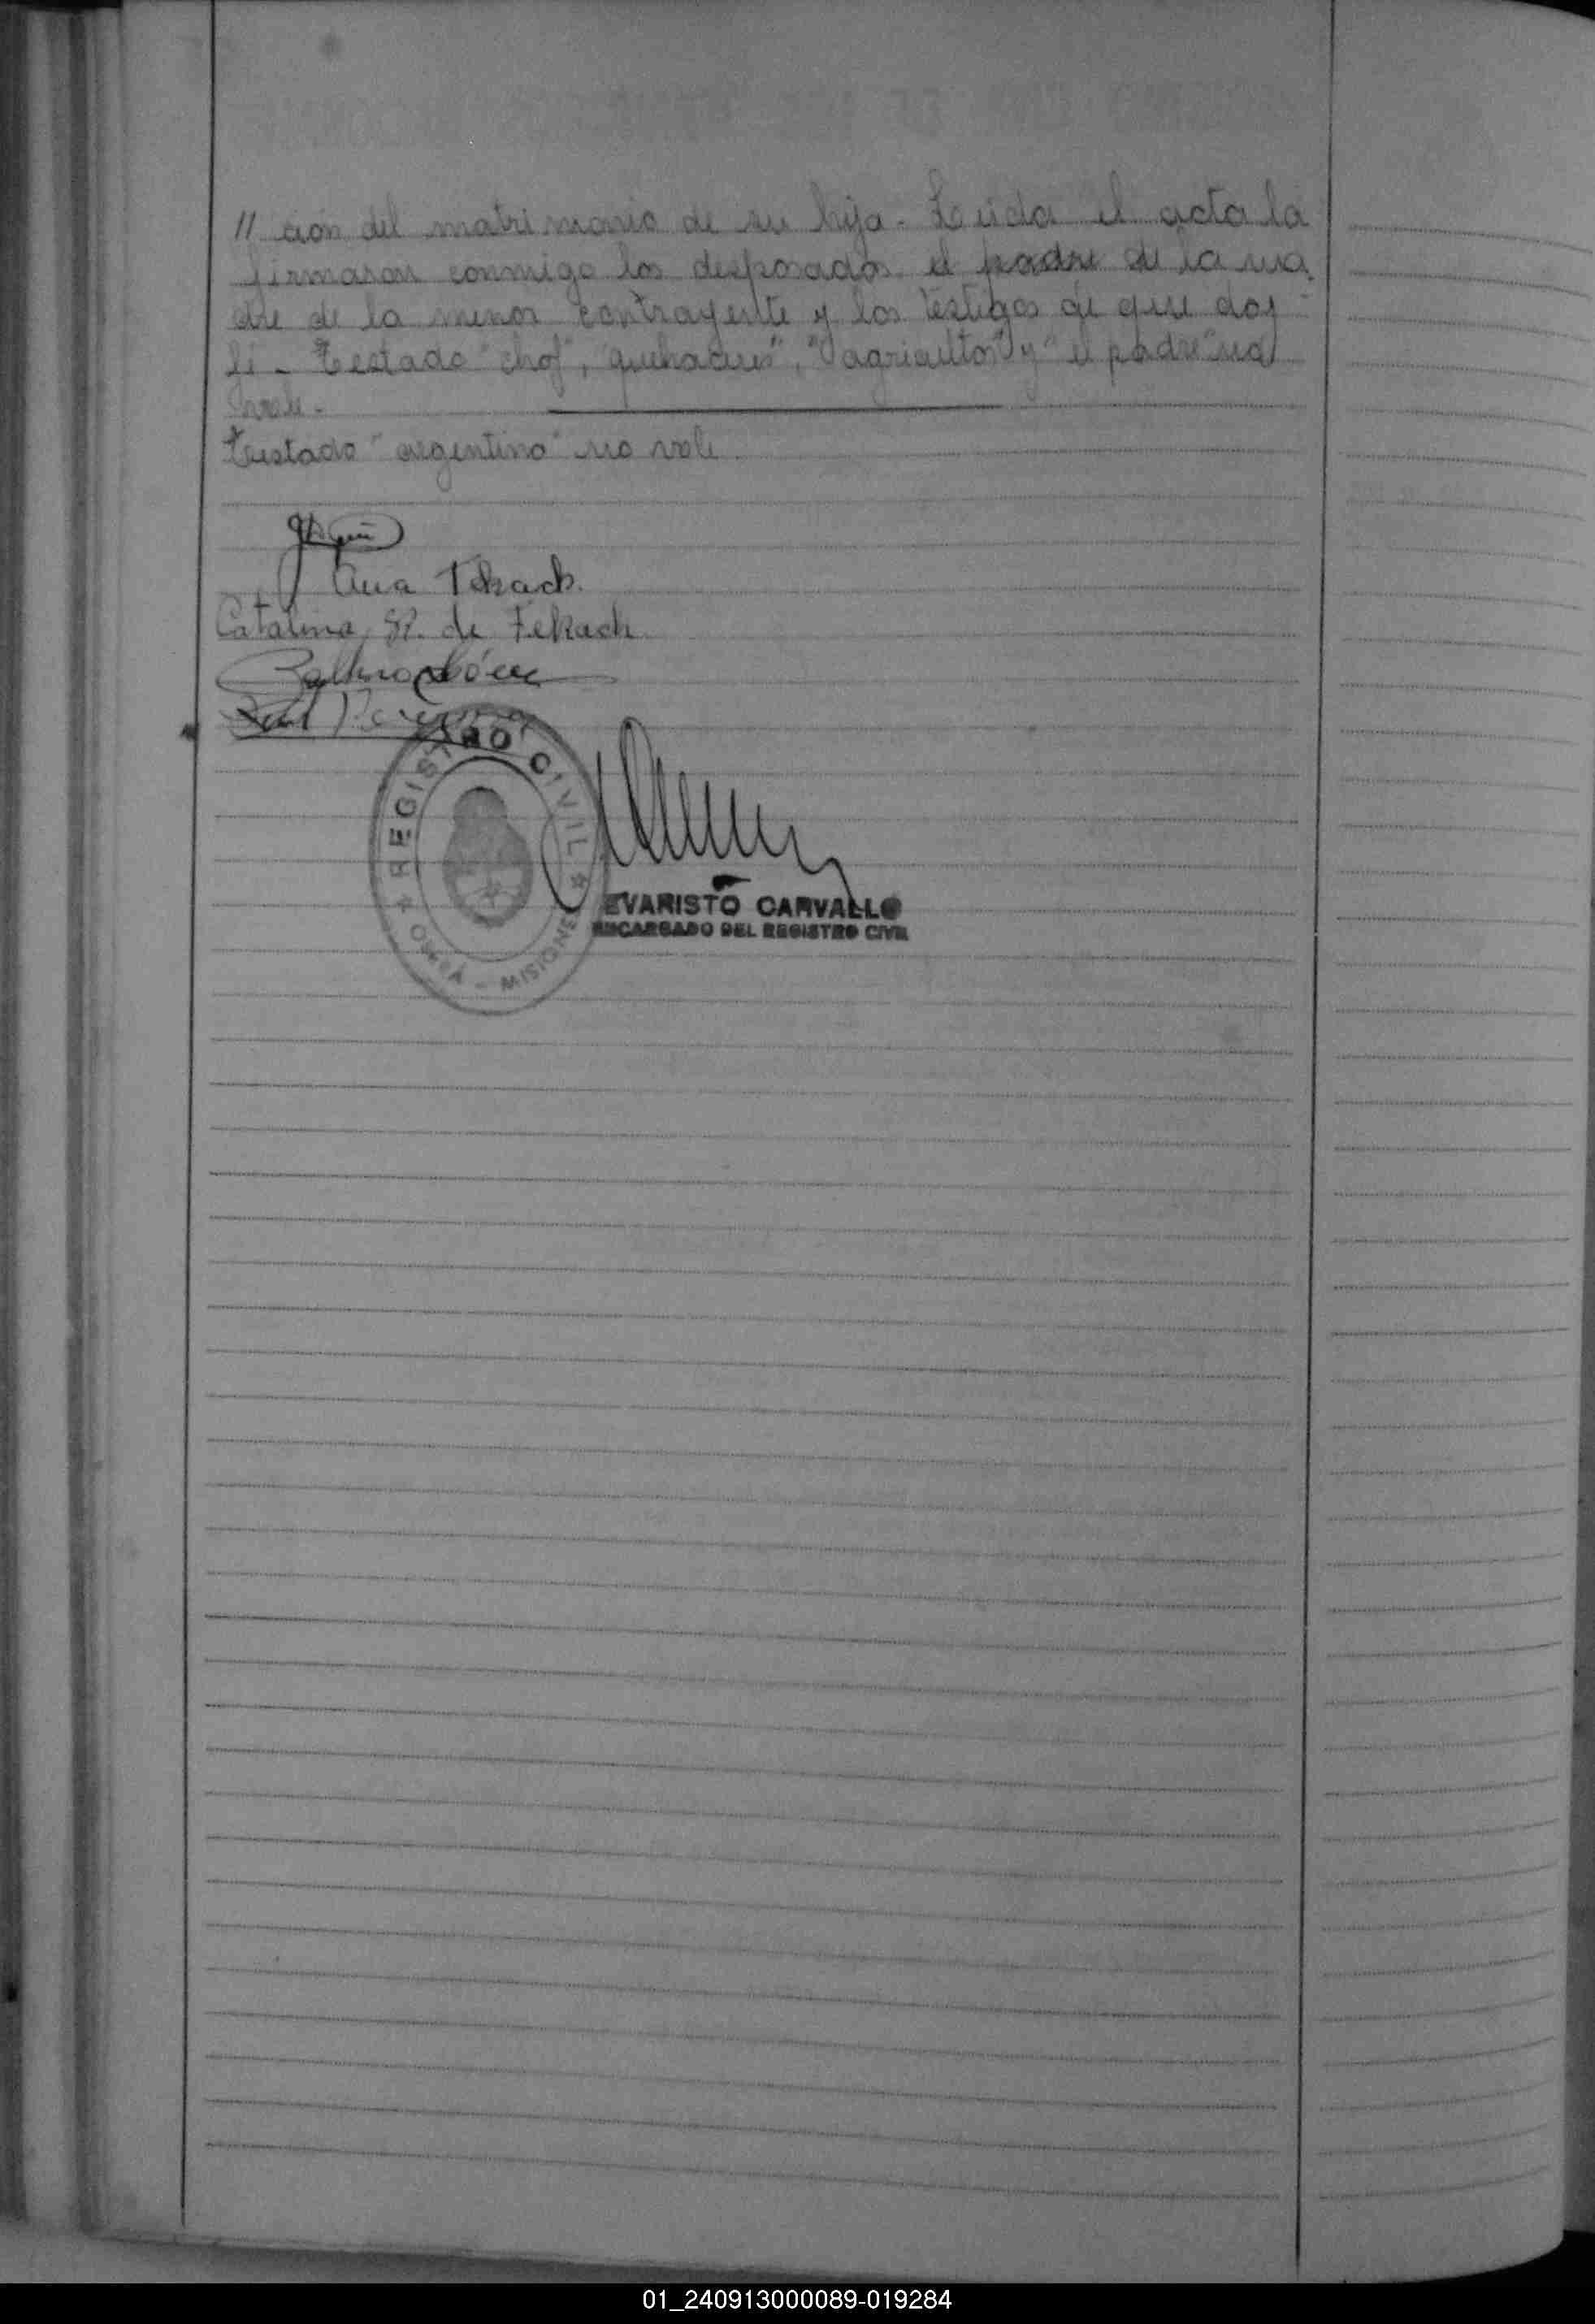 // ción del matrimonio de su hija. Leida el acta la
firmaron conmigo los desposados el padre de la ma
dre de la menor contrayente y los testigos de que doy
fé - Testado "chof", "quehaceres", "agricultor" y "el padre" no
vale.-
Testado "argentino" no vale.
Ana Tekach.
Catalina de Tekach
REGISTRO CIVIL
MISIONES
EVARISTO CARVALLO
ENCARGADO DEL REGISTRO CIVIL
01_240913000089-019284